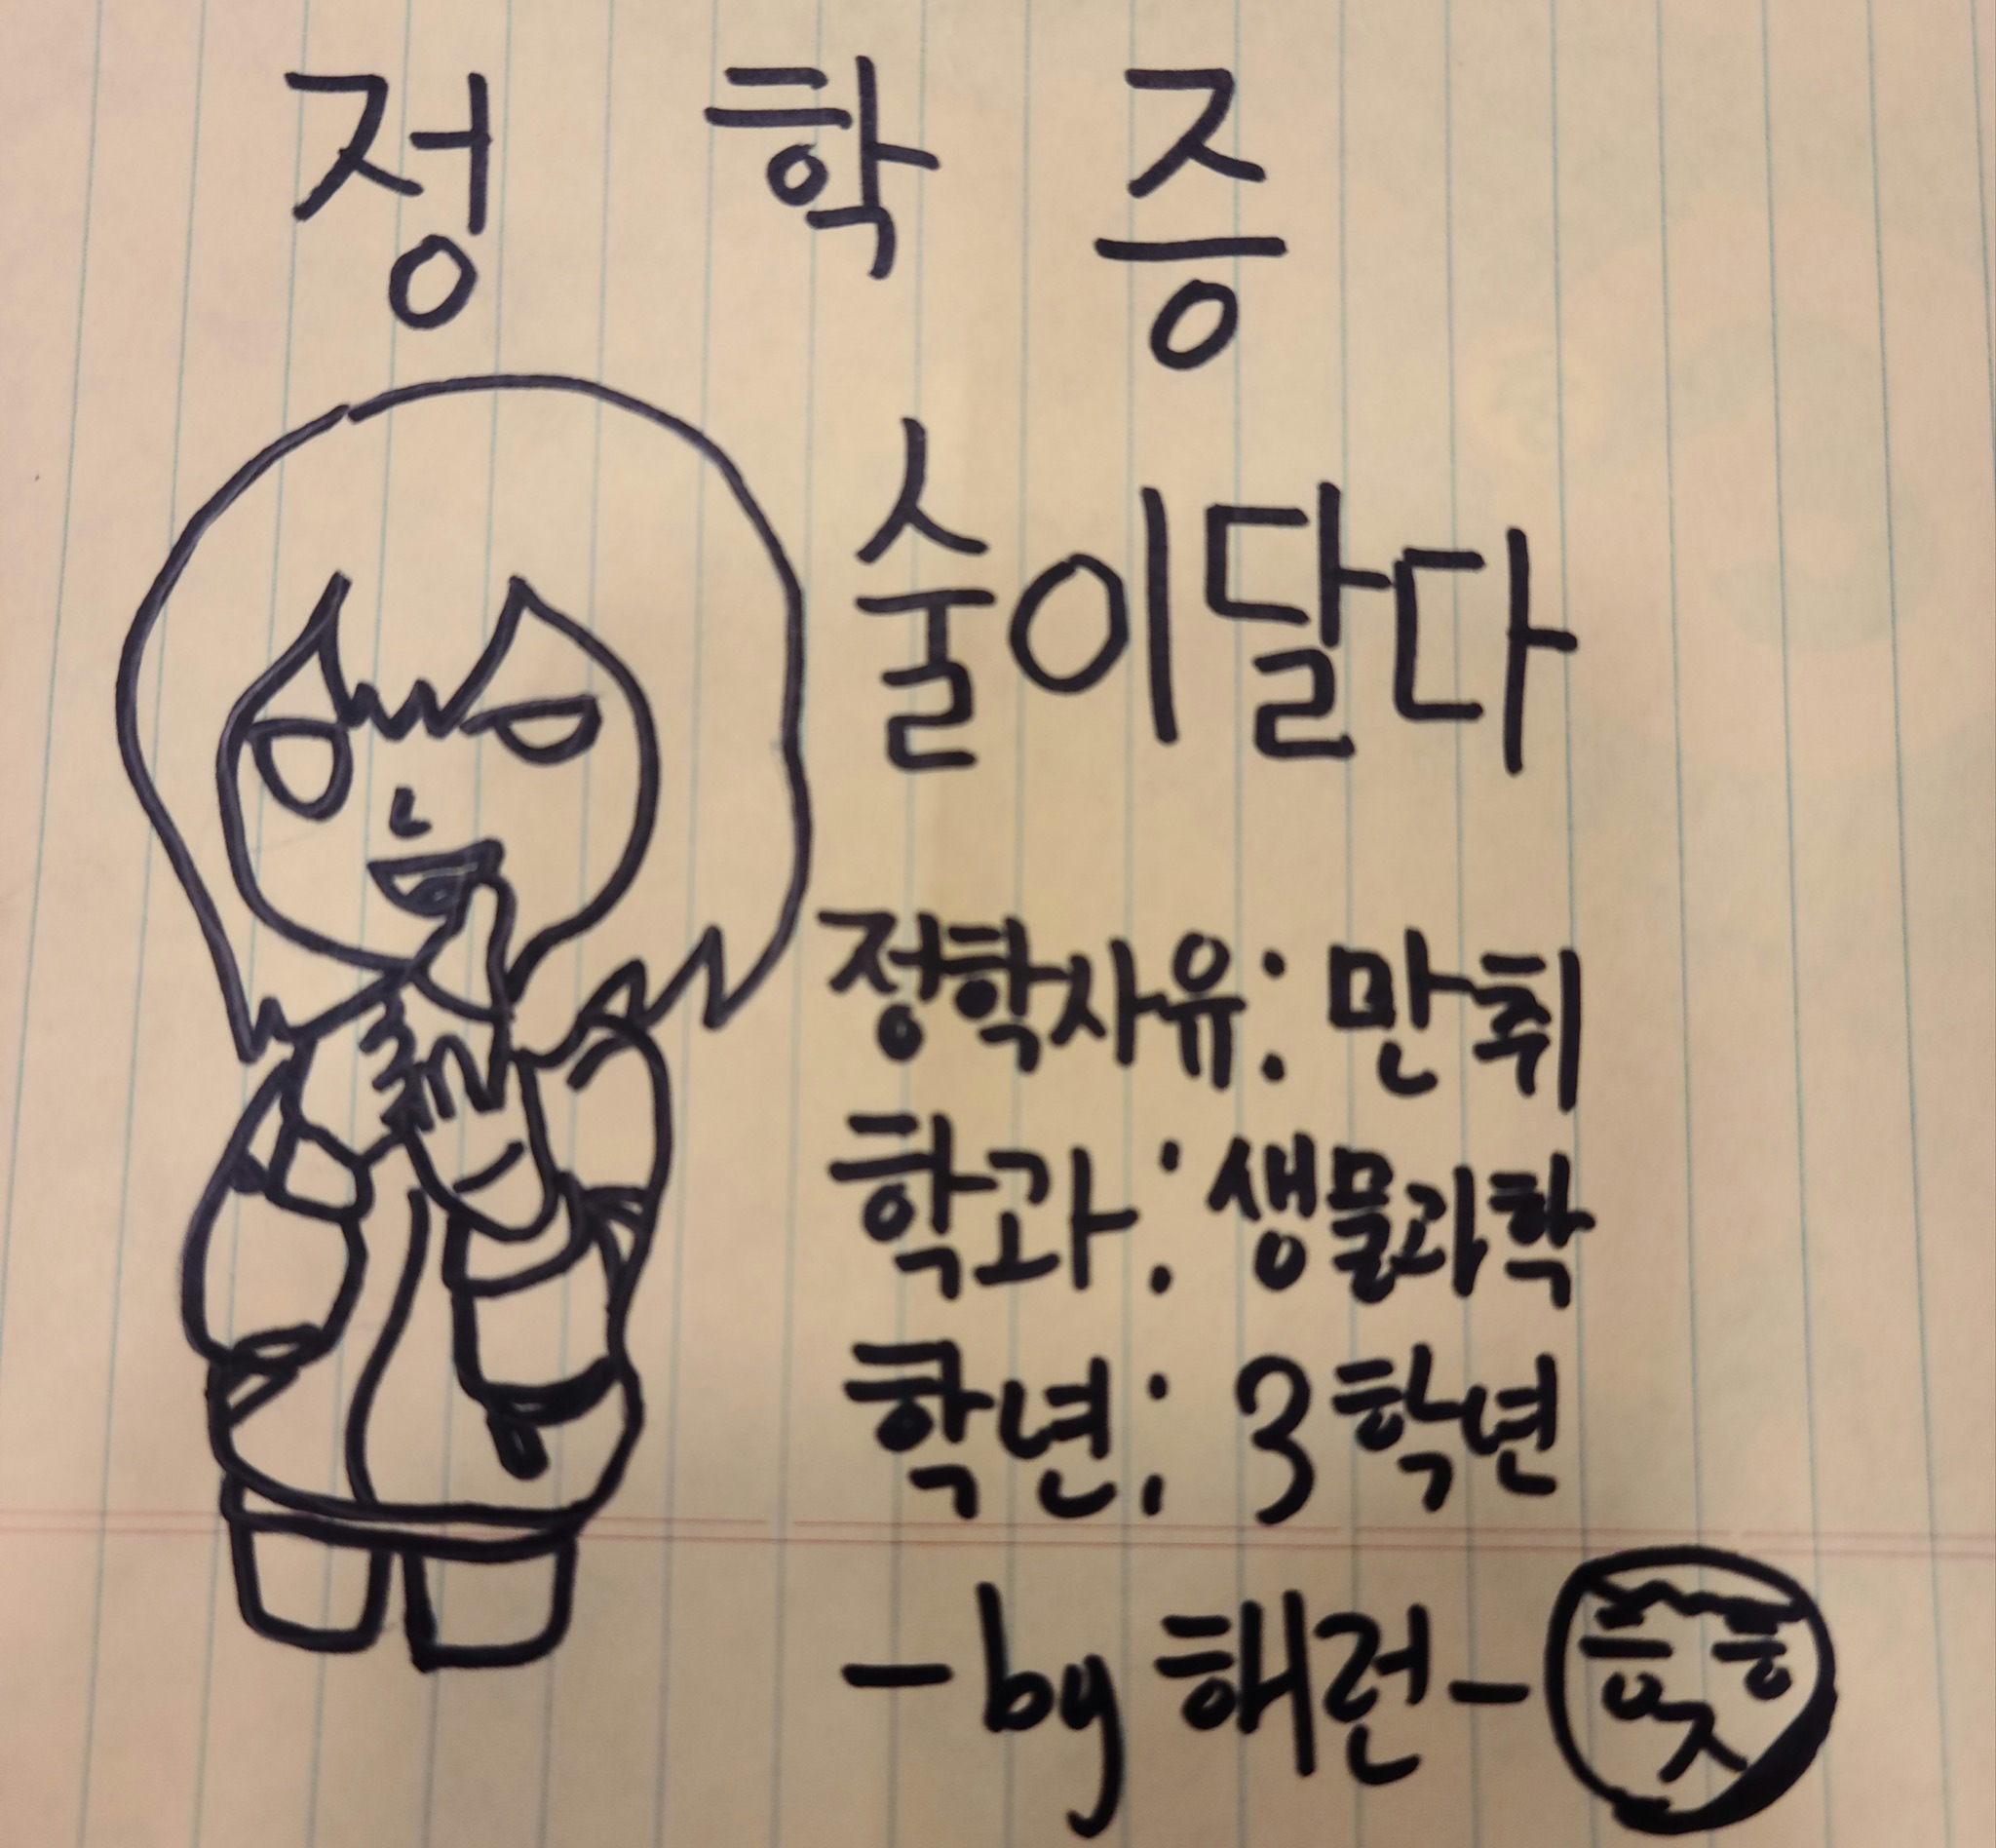 정 학 증
술이달다
정학사유: 만취
학과: 생물과학
학년: 3학년
-by 해런-